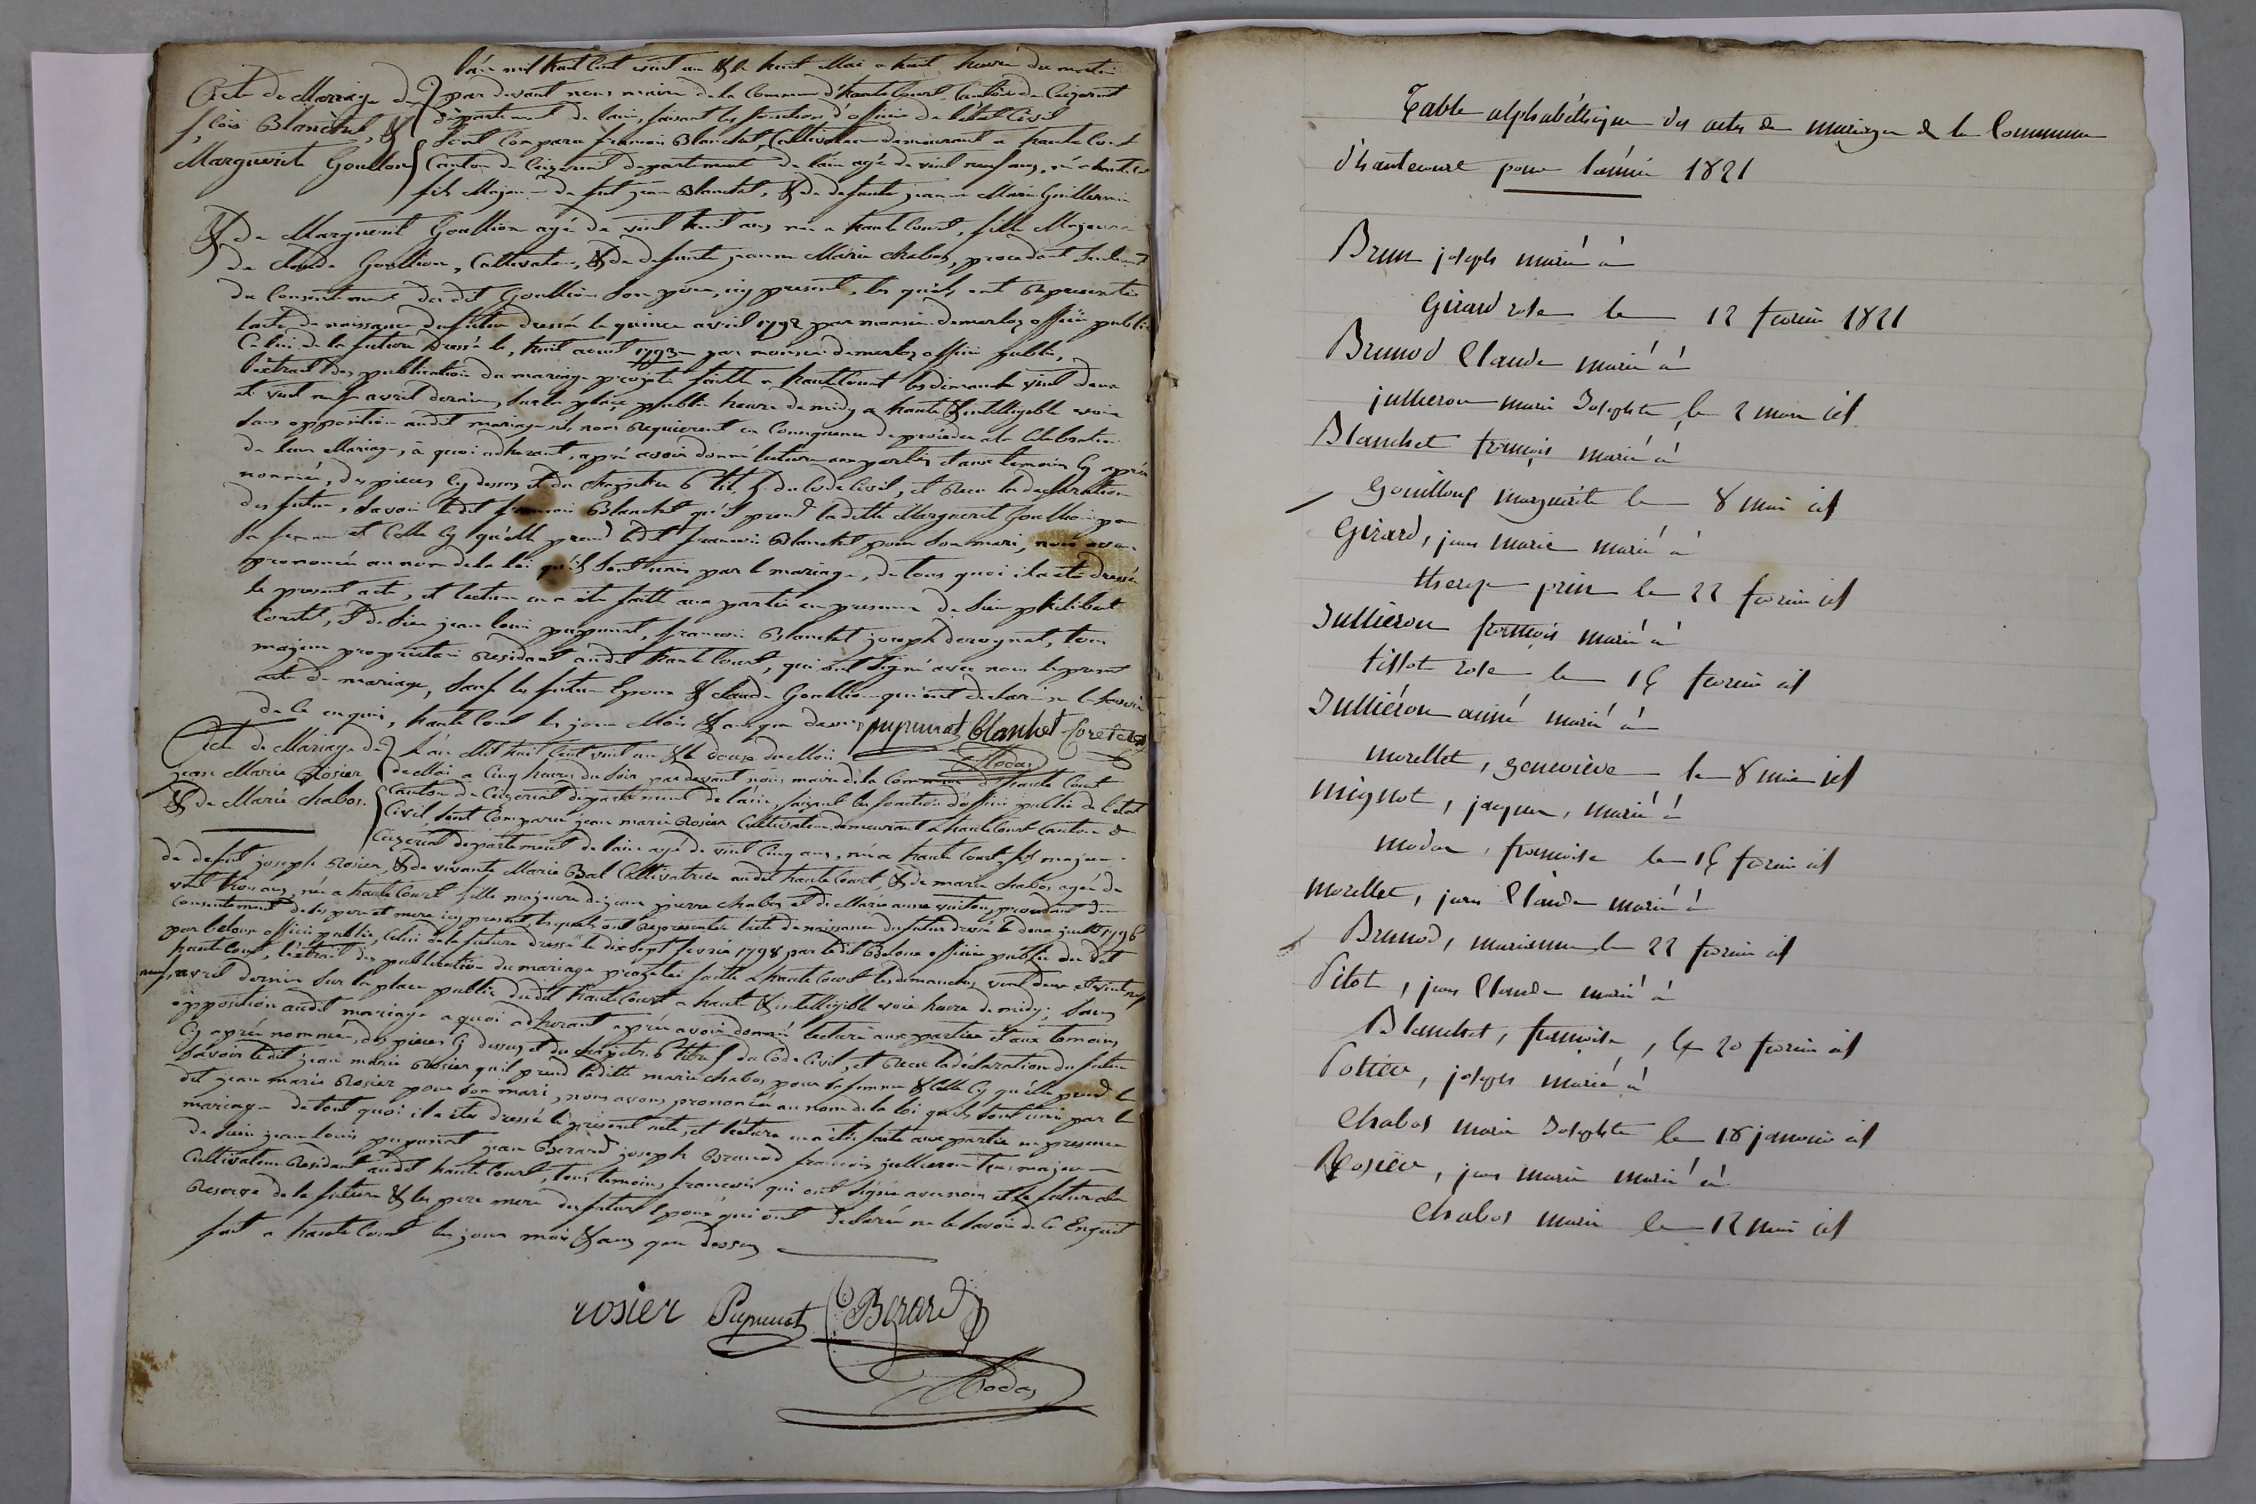 l'an mil huit cent vint un & le huit Mai a huit heure du matin
Acte de Mariage de par devant nous maire de la Commune d'hautecourt, Canton de Ceizeriat
département de l'ain, faisant les fonction d'officier de l'état Civil
f.çois Blanchet, & sont Comparu francois Blanchet, Cultivateur demeurant a hautecourt
Marguerite Goullion Canton de Ceizeriat departement de l'ain agé de vint neuf ans, né a hautecourt
fils Majeur de feut jean Blanchet, & de defunte jeanne Marie Guillermin
& De Marguerit Goullion agée de vint huit ans née a haute Court, fille Majeure
de Claude Goullion, Cultivateur, & de defunte jeanne Marie Chabos, procedant
du Consentement du dit Goullion son père, icy present, les quels ont representés
l'acte de naissance du futur dressée le quinze avril 1792 par monsieur demerloz officier public
Celui de la future dressé le, huit avril 1793 par monsieur demerloz officier public,
l'extrait des publication du mariage projeté faitte a hautecourt les dimanche vint deux
et vint neuf avril dernier, sur la place public heure de midy a haute & intelligible voix
sans opposition audit mariage, nous requierent en Consequence de proceder a la Celebration
de leur Mariage, à quoi adherant, après avoir donné lecture aux parties et aux temoins Cy après
nommés, des pieces Cy dessus et du Chapitre 6 tit. 5. du Code Civil, et recu la declaration
des futur, savoir ledit francois Blanchet qu'il prend laditte Marguerit Goullion pour
sa femme et Celle Cy qu'elle prend ledit francois Blanchet pour son mari, nous avons
prononcée au nom de la loi qu'ils sont unis par le mariage, de tous quoi il a été dressée
le present acte, et lecture en a été faitte aux partie en presence de sieur philibert
Coretet, & de sieur jean louis pupunat, francois Blanchet joseph derognat, tous
majeur propriétaire residant audit haute Court, qui ont signé avec nous le present
acte de mariage, sauf les futur Epoux & claude Goullion qui ont declaré ne le savoir
de ce enquis, haute Court les jour Mois & an que dessus pupunat Blanhet Coretet
Rodas
Acte de Mariage de L'an Mil huit Cent vint un & le douze du Moi
jean Marie Rosier de Mai a Cinq heures du soir par devant nous maire de la Commune d'haute Court
& de Marie Chabos. Canton de Ceizeriat département de l'ain, faisant les fonction d'officier public de l'etat
Civil, sont Comparu jean marie Rosier Cultivateur demeurant a haute Court Canton de
Ceizeriat departement de l'ain agé de vint Cinq ans, né a haute Court, fils majeur
de defunt joseph Rosier, & de vivante Marie Bal Cultivatrice audit hautecourt, & de marie Chabos agée de
vint trois ans, née a haute Court fille majeure de jean pierre Chabos et de Marie anne vuiton, procedant du
Consentement de ses pere et mere icy present, les quels ont representée l'acte de naissance du futur dressé le deux juillet 1796
par beloux officier public, Celui de la future dressé le dix sept fevrié 1798, par ledit Beloux officier public du dit
haute Court, l'extrait des publication du mariage projeté faitte a haute Court les dimanches, vint deux et vint neuf
neuf, avril dernier sur la place public dudit haute Court a haute & intelligible voix heure de midy, sans
opposition audit mariage a quoi adherant après avoir donné lecture aux parties et aux temoins
Cy après nommés, des pieces Cy dessus et du chapitre 6 titre 5 du Code Civil, et recu la déclaration du futur
savoir ledit jean marie Rosier qu'il prend laditte marie chabos pour sa femme & Celle Cy qu'elle prend le
dit jean marie Rosier pour son mari, nous avons prononcée au nom de la loi qu'ils sont unis par le
mariage de tout quoi il a été dressé le present acte, et lecture en a été faite aux partie en presence
de sieur jean louis pupunat jean Berard joseph Brunod francois jullieron tous majeur
Cultivateur residant audit haute Court, tous temoins francois qui ont signé avec nous et le futur
reserve de la future & les pere mere des futur Epoux qui ont declarée ne le savoir de Ce Enquit
fait a haute Court les jour mois & an que dessus
rosier Pupunat Berard
Rodas
Table alphabéttique des actes de mariage de la Commune
d'hautecourt pour l'année 1821
Brun joseph marié à
Girard rose le 12 fevrier 1821
Brunod Claude marié à
jullieron marie Josephte le 2 mars id
Blanchet françois marié à
Gouilloux marguérite le 8 mai id
Girard, jean marie marié à
therese prin le 22 fevrier id
Jullieron françois marié à
tissot rose le 15 fevrier id
Julliéron aimé marié à
morellet, geneviève le 8 mai id
mignot, jacques, marié à
modas, francoise le 15 fevrier id
morellet, jean Claude marié à
Brunod, marianne le 22 fevrier id
Pitot, jean Claude marié à
Blanchet, françoise, le 20 fevrier id
Pottier, joseph marié à
Chabos marie Josephte le 18 janvier id
Rosier, jean marie marié à
Chabos marie le 12 mai id